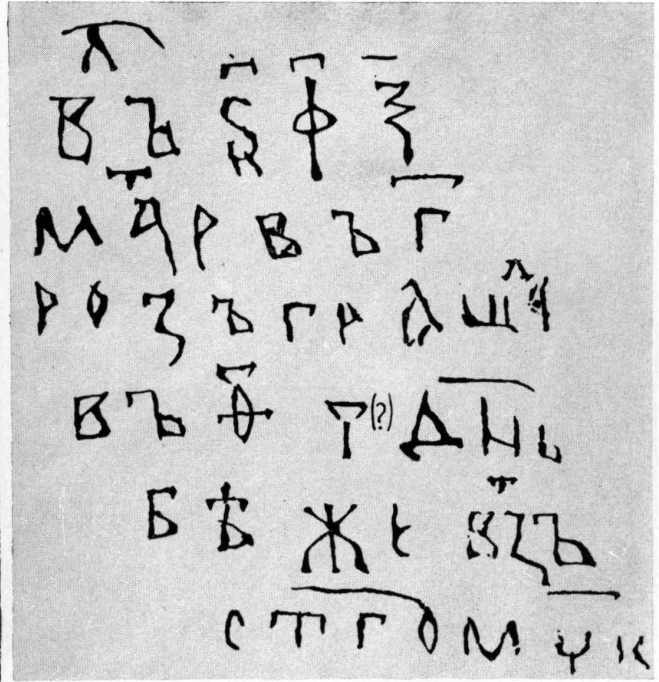 ВЪ л Ѕ҃ Ф҃ Ѯ҃
МАт РВЪ Г҃
РОЗЪГРАШ
ВЪ Ѳ҃ Т(?) ДН҃Ь
БѢ ЖЕ ВЦтЪ
СТ҃ГО МЧ҃К